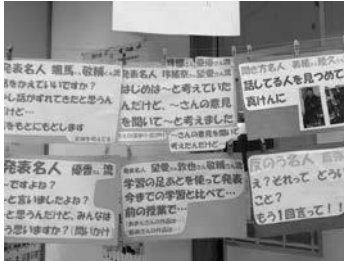 発表名人 颯馬さん敬輔さん流
話をかえていいですか?
し話がずれてきたと思うん
だけど…
話をもとにもどします
発表名人 珠稀奈さん望愛さん流
はじめは〜と考えていた
んだけど、〜さんの意見
を聞いて〜と考えました
〜さんの意見を聞いて
考えたんだけど、
聞き方名人
話してる人を見つめて
真けんに
発表名人 優香さん流
〜ですよね?
〜と言いましたよね?
〜と思うんだけど、みんなは
どう思いますか?(問いかけ)
発表名人 望愛さん敦也さん敬輔さん流
学習の足あとを使って発表
今までの学習と比べて…
前の授業で…
反のう名人
え?それって どういう
こと?
もう1回言って!!